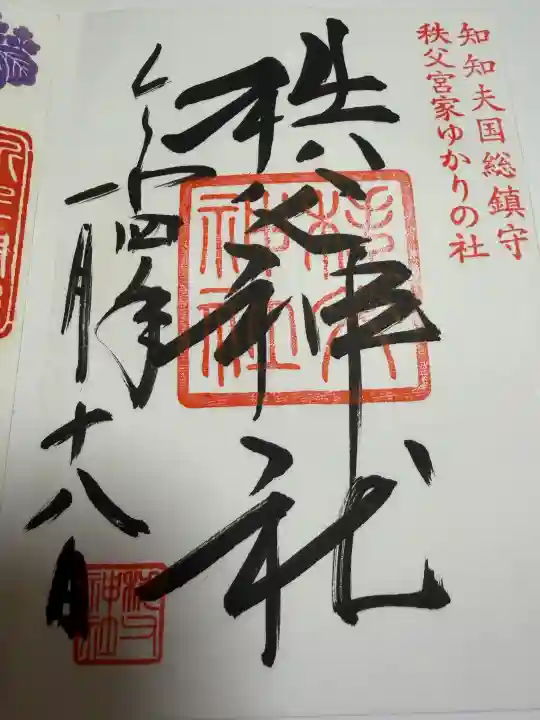 知知夫国総鎮守
秩父宮家ゆかりの社
秩父神社
秩父神社
令和四年
一月十八日
秩父神社